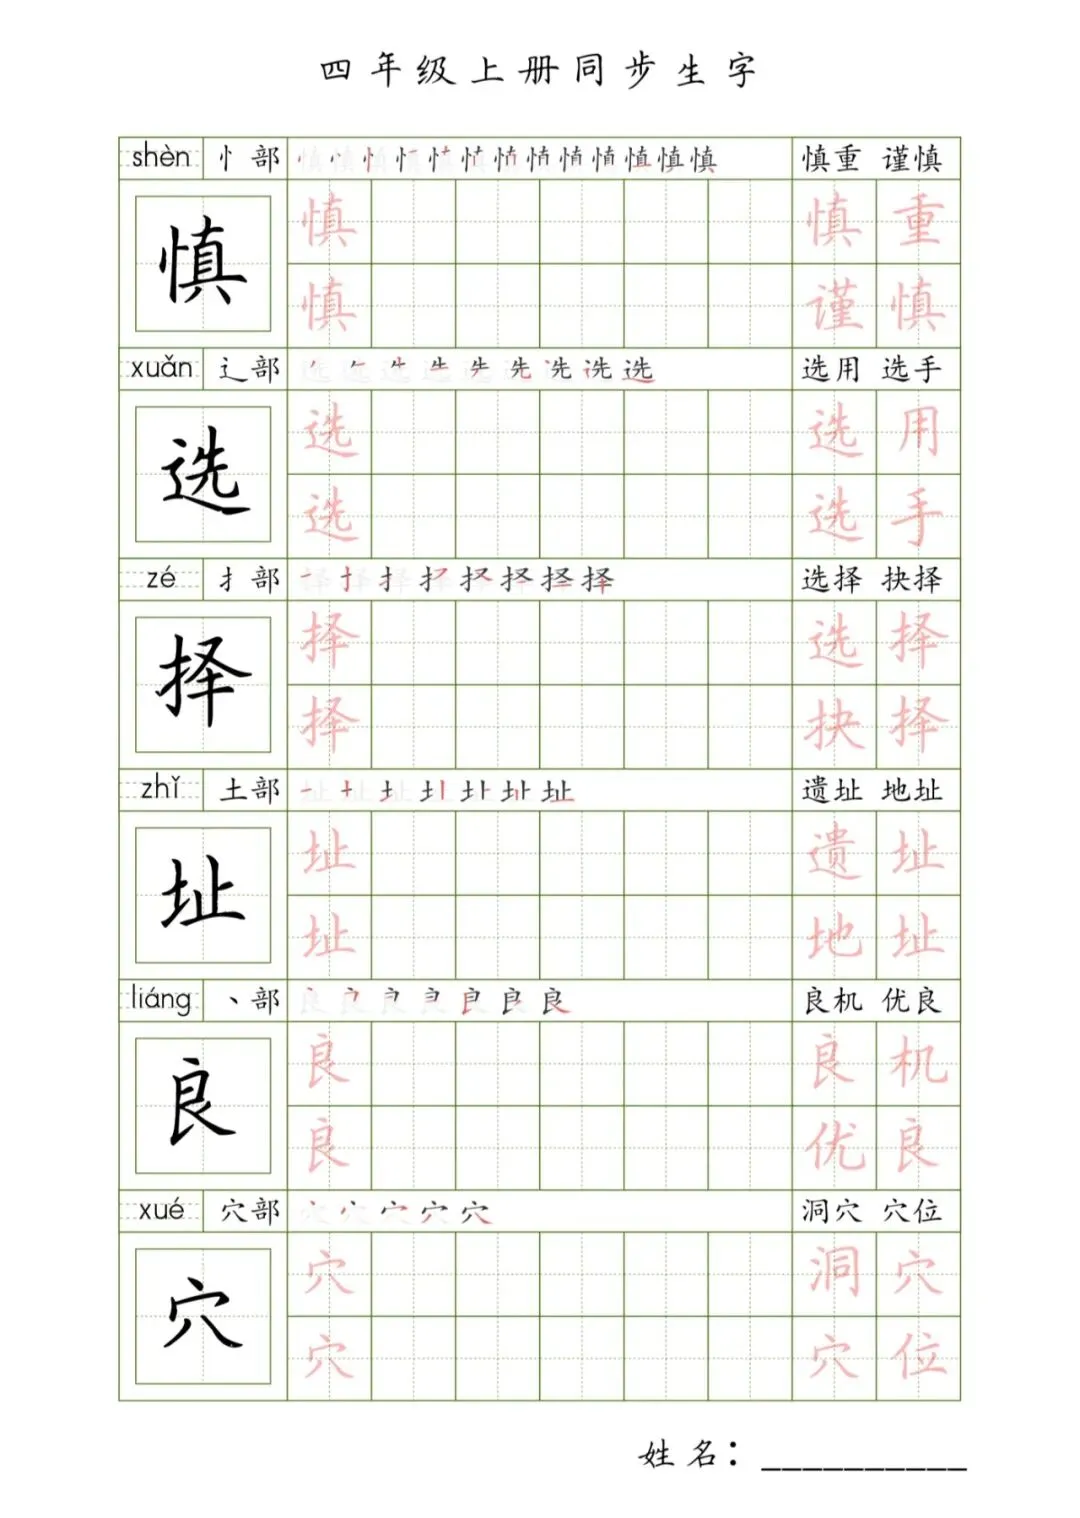 四年级上册同步生字
shèn 忄部 慎重 谨慎
慎 慎 慎 重
慎 谨 慎
xuǎn 辶部 选用 选手
选 选 选 用
选 选 手
zé 扌部 选择 抉择
择 择 选 择
择 抉 择
zhǐ 土部 遗址 地址
址 址 遗 址
址 地 址
liáng 丶部 良机 优良
良 良 良 机
良 优 良
xué 穴部 洞穴 穴位
穴 穴 洞 穴
穴 穴 位
姓名：__________